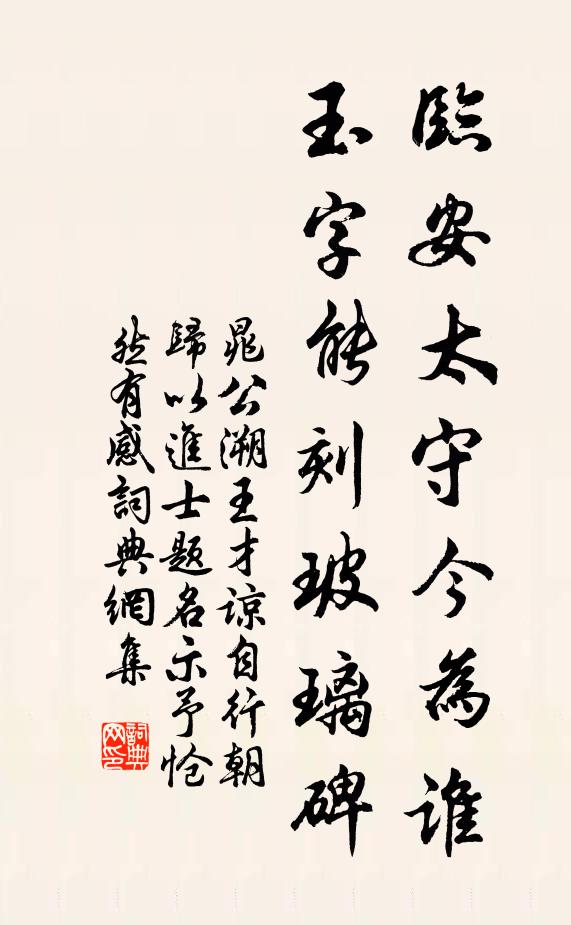 臨安太守今為誰
玉字能刻玻璃碑
晁公溯王才諒自行朝
歸以進士題名示予愴
然有感詞典網集
詞典网印